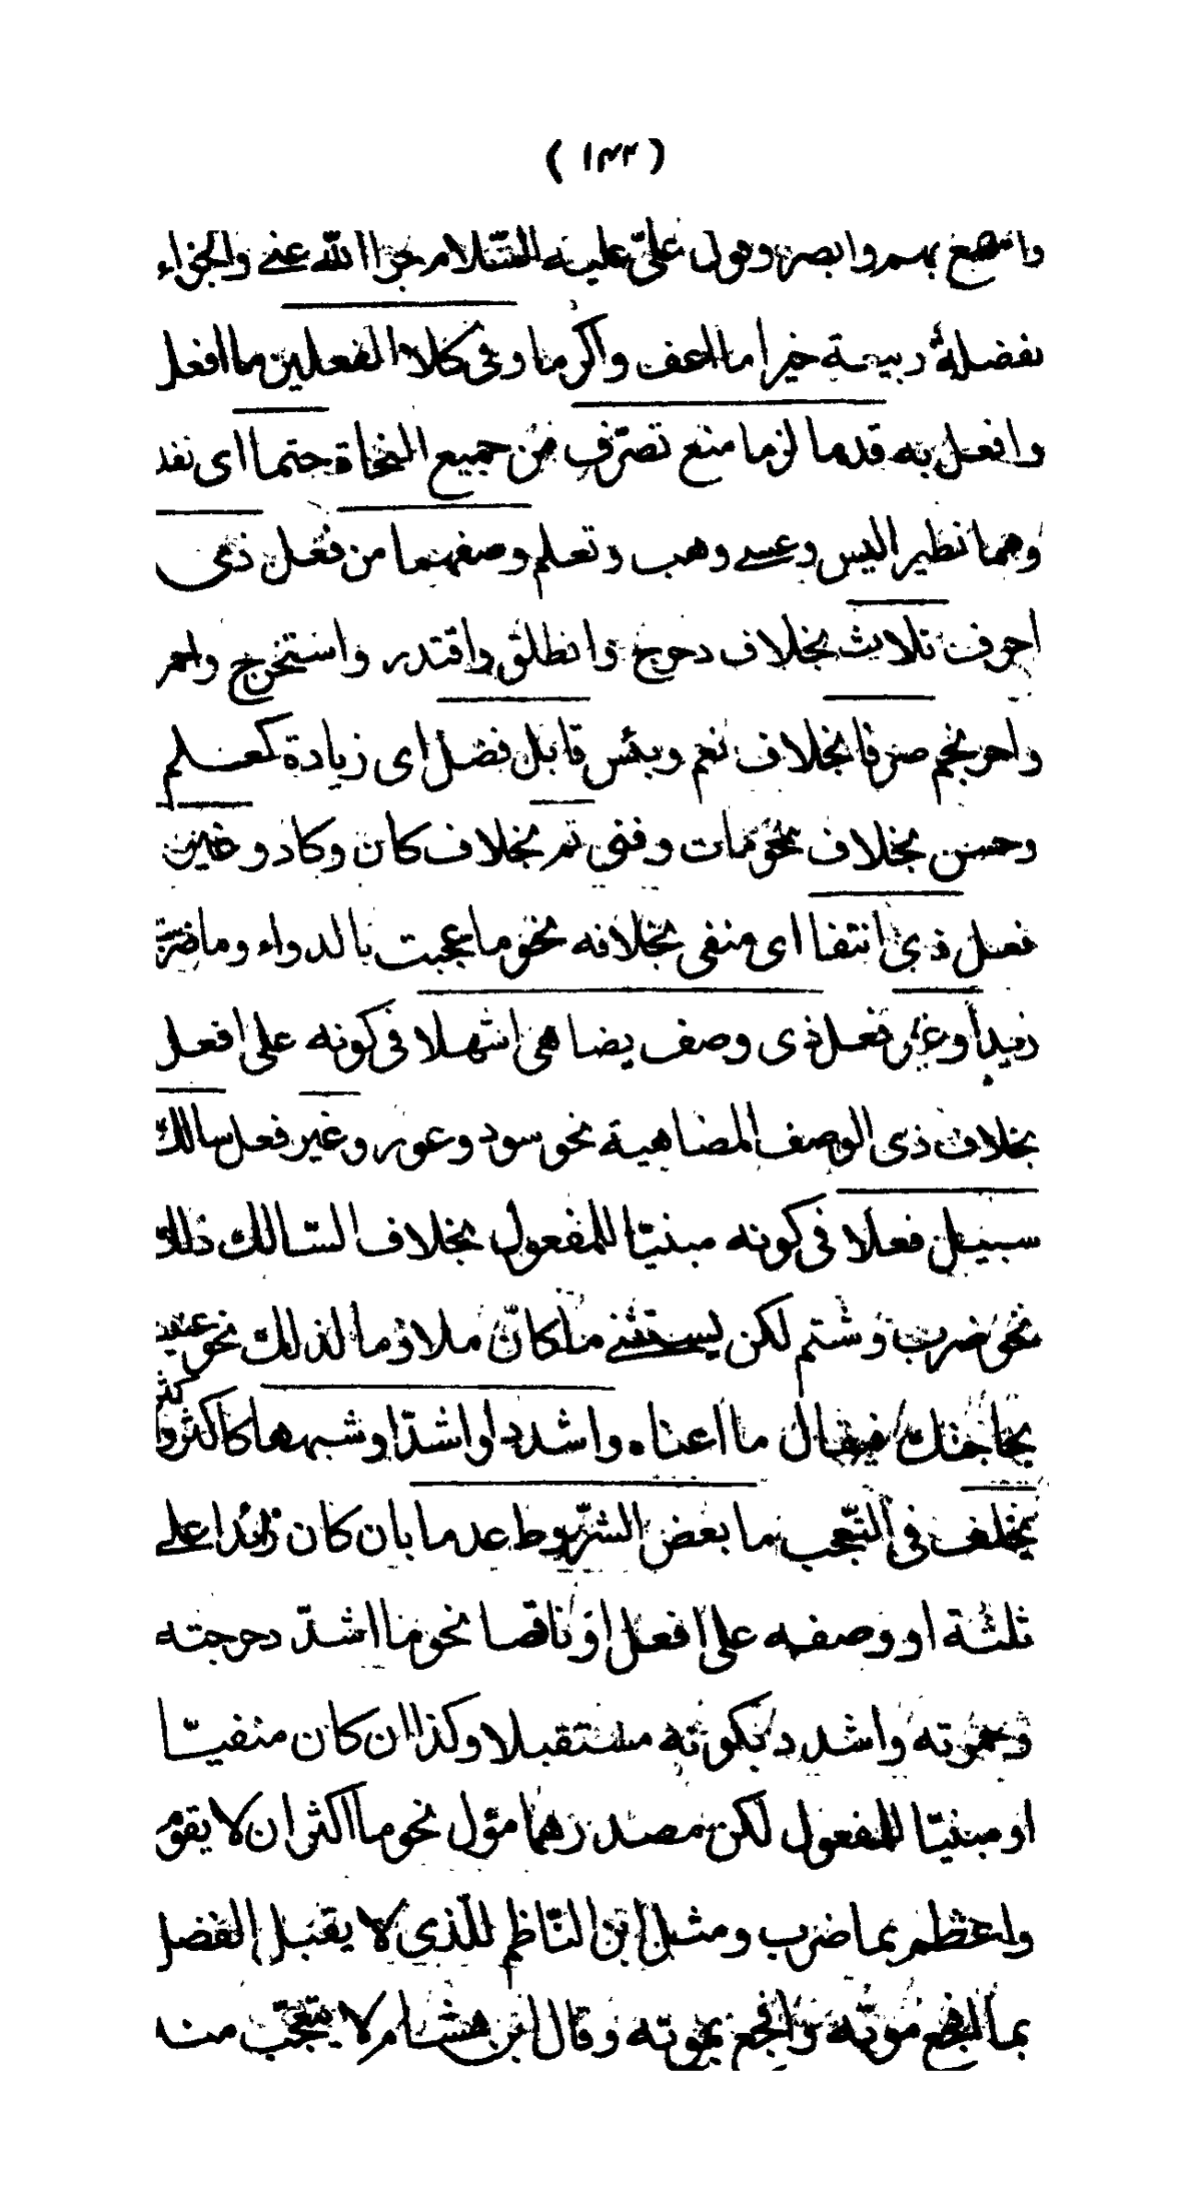 (١٣٢)
واسمع بهم وابصر وقول علىّ عليه السّلام جزا الله عنى والجزاء
بفضله ربيعة خيرا ما اعف واكرما وفى كلا الفعلين ما افعل
وافعل به قدما لزما منع تصرّف من جميع النحاة حتما اى نفد
وهما نظير اليس وعسى وهب وتعلم وصغهما من فعل ذى
احرف ثلاث بخلاف دحرج وانطلق واقتدر واستخرج واحمر
واحرنجم صرفا بخلاف نعم وبئس قابل فضل اى زيادة كعلم
وحسن بخلاف نحو مات وفنى تم بخلاف كان وكاد وغير
فعل ذى انتفا اى منفى بخلافه نحو ما عجبت بالدواء وما ضربت
زيدا وغير فعل ذى وصف يضاهى اشهلا فى كونه على افعل
بخلاف ذى الوصف المضاهية نحو سود وعور وغير فعل سالك
سبيل فعلا فى كونه مبنيّا للمفعول بخلاف السّالك ذلك
نحو ضرب وشتم لكن يستثنى ما كان ملازما لذلك نحو عنيت
بحاجتك فيقال ما اعناه واشدد او اشدّ او شبههما كاكثر واكثر
يخلف فى التّعجب ما بعض الشّروط عدما بان كان زائدا على
ثلثة او وصفه على افعل او ناقصا نحو ما اشدّ دحرجته
وحمرته واشدد بكونه مستقبلا وكذا ان كان منفيّا
او مبنيّا للمفعول لكن مصدرهما مؤل نحو ما اكثر ان لا يقوم
واعظم بما ضرب ومثل ابن النّاظم للّذى لا يقبل الفضل
بما افجع موته وافجع بموته وقال ابن هشام لا يتعجّب منه